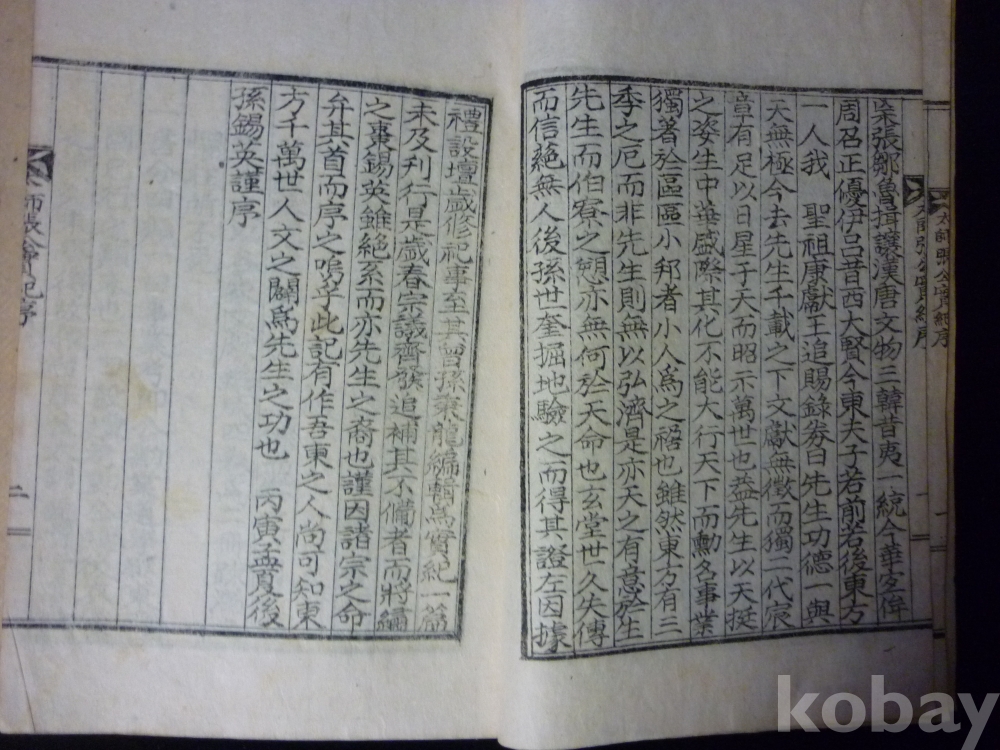 張鄒魯揖讓漢唐文物三韓昔夷一統今華
周召正優伊呂昔西大賢今東夫子若前若後東方
一人我 聖祖康獻王追賜錄券曰先生功德一與
天無極今去先生千載之下文獻無徵而獨二代宸
章有足以日星于天而昭示萬世也盖先生以天挺
之姿生中華盛際其化不能大行天下而勳名事業
獨著於區區小邦者小人爲之禧也雖然東方有三
季之厄而非先生則無以弘濟是亦天之有意於生
先生而伯寮之愬亦無何於天命也玄堂世久失傳
而信蹟無人後孫世奎掘地驗之而得其證左因據
禮設壇歲修祀事至其曾孫秉龍編輯爲實紀一
未及刊行是歲春宗議齊發追補其不備者而將編
之棗錫英雖絶系而亦先生之裔也謹因諸宗之命
弁其首而序之嗚乎此記有作吾東之人尚可知東
方千萬世人文之闢爲先生之功也 丙寅孟夏後
孫錫英謹序
二
kobay